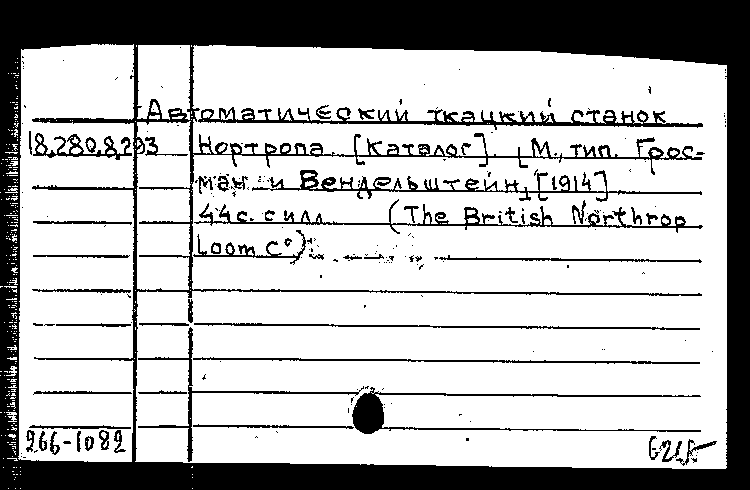 Автоматический ткацкий станок
18.280.8.293 Нортропа [Каталог]. [М., тип. Грос-
ман и Вендельштейн], [1914]
44 с. с илл. (The British Northrop
Loom C°)
266-1082